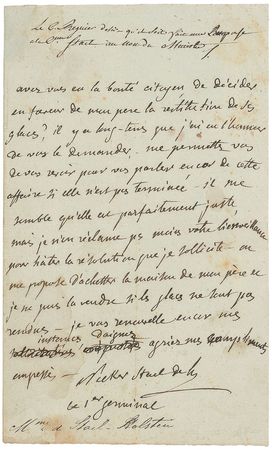 Le C. Regnier desire qu'il soit fait une Reponse
a la C.enne Stael au nom du Ministre
avez vous eu la bonté citoyen de décider
en faveur de mon père la restitution de ses
glaces? il y a long-tems que j'ai eu l'honneur
de vous le demander. me permettez vous
de vous revoir pour vous parler encor de cette
affaire si elle n'est pas terminée - il me
semble qu'elle est parfaitement juste
mais je n'en réclame pas moins votre bienveillance
pour hâter la résolution que je sollicite - on
me propose d'acheter la maison de mon père et
je ne puis la vendre si les glaces ne sont pas
rendues - je vous renouvelle encor mes
instances daignez
agréer mes complimens
empressés -
Necker Stael de H
ce 1er germinal
Mme de Stael-Holstein